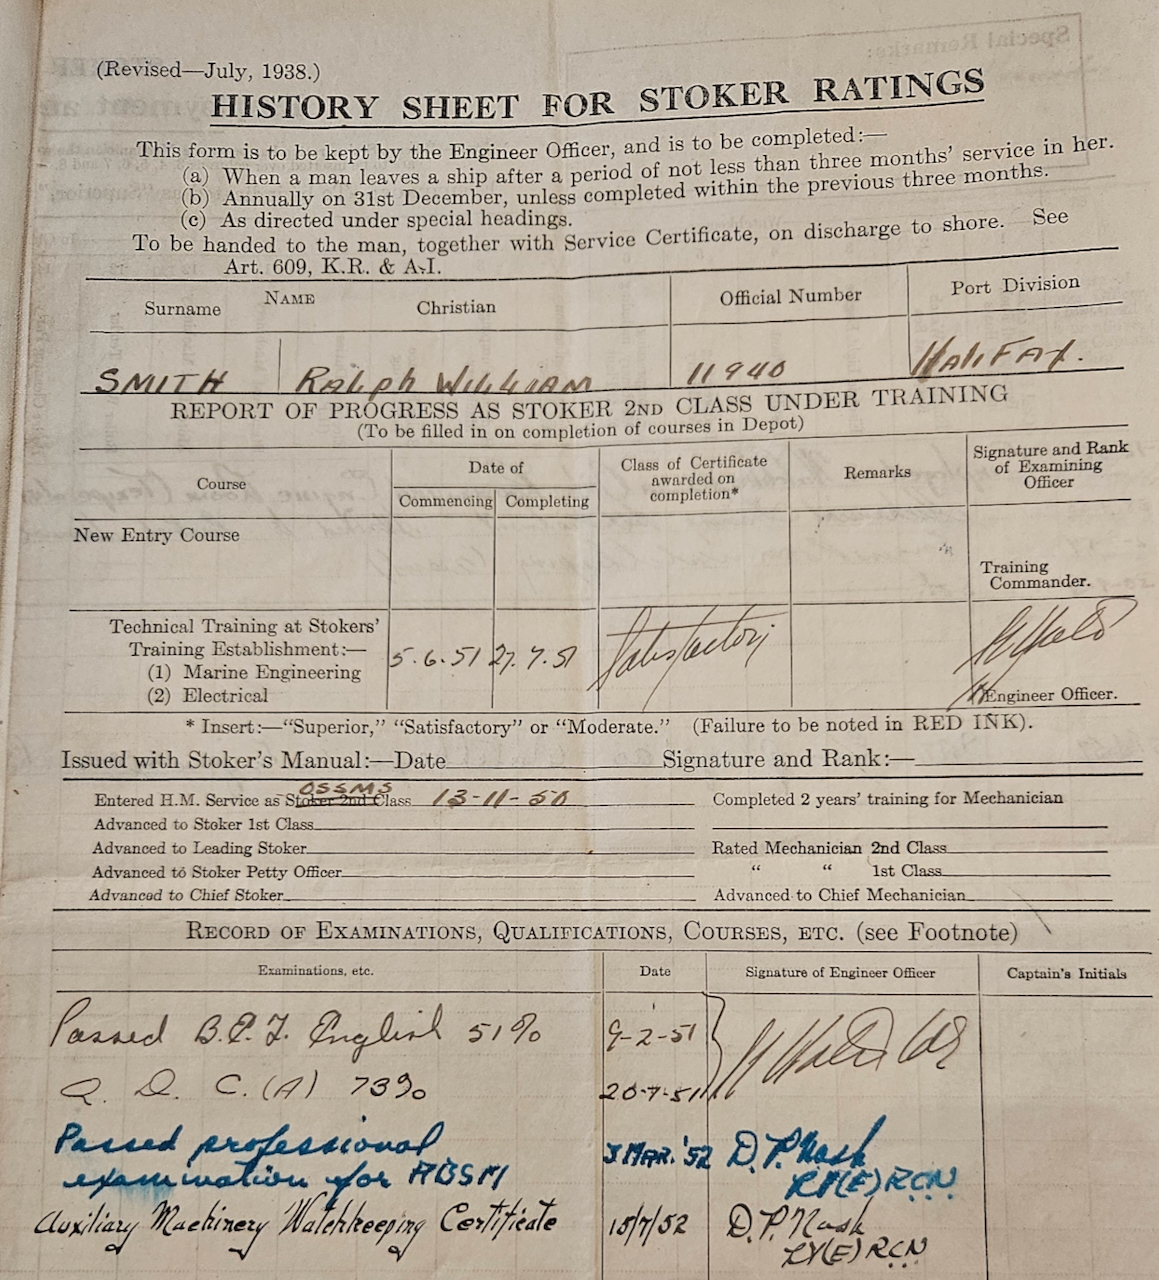 (Revised—July, 1938.)
HISTORY SHEET FOR STOKER RATINGS
This form is to be kept by the Engineer Officer, and is to be completed:—
(a) When a man leaves a ship after a period of not less than three months' service in her.
(b) Annually on 31st December, unless completed within the previous three months.
(c) As directed under special headings.
To be handed to the man, together with Service Certificate, on discharge to shore. See
Art. 609, K.R. & A.I.
Surname NAME Christian Official Number Port Division
SMITH Ralph WILLIAM 11940 HaliFAX.
REPORT OF PROGRESS AS STOKER 2ND CLASS UNDER TRAINING
(To be filled in on completion of courses in Depot)
Course Date of Commencing Completing Class of Certificate awarded on completion* Remarks Signature and Rank of Examining Officer
New Entry Course
Training Commander.
Technical Training at Stokers'
Training Establishment:—
(1) Marine Engineering
(2) Electrical
5.6.51 27.7.51 Satisfactory
Engineer Officer.
* Insert:—"Superior," "Satisfactory" or "Moderate." (Failure to be noted in RED INK).
Issued with Stoker's Manual:—Date Signature and Rank:—
OSSMS
Entered H.M. Service as Stoker 2nd Class 13-11-50 Completed 2 years' training for Mechanician
Advanced to Stoker 1st Class
Advanced to Leading Stoker Rated Mechanician 2nd Class
Advanced to Stoker Petty Officer " " 1st Class
Advanced to Chief Stoker Advanced to Chief Mechanician
RECORD OF EXAMINATIONS, QUALIFICATIONS, COURSES, ETC. (see Footnote)
Examinations, etc. Date Signature of Engineer Officer Captain's Initials
Passed B.E.T. English 51% 9-2-51
Q. D. C. (A) 73% 20-7-51
Passed professional 3 MAR. '52 D.P. Nash
examination for ABSM (E) R.C.N.
Auxiliary Machinery Watchkeeping Certificate 15/7/52 D.P. Nash
(E) R.C.N